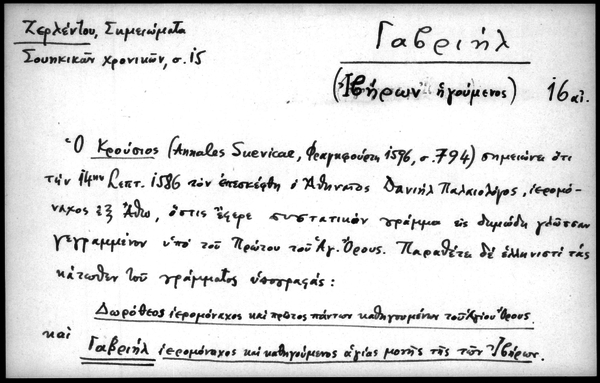 Ζερλέντου, Σημειώματα
Σουηκικῶν χρονικῶν, σ. 15
Γαβριήλ
(Ἰβήρων ἡγούμενος) 16 αἰ.
Ὁ Κρούσιος (Annales Suevicae, Φραγκφούρτη 1596, σ. 794) σημειώνει ὅτι
τὴν 14ην Σεπτ. 1586 τὸν ἐπεσκέφθη ὁ Ἀθηναῖος Δανιὴλ Παλαιολόγος, ἱερομό-
ναχος ἐξ Ἄθω, ὅστις ἔφερε συστατικὸν γράμμα εἰς δημώδη γλῶσσαν
γεγραμμένον ὑπὸ τοῦ Πρώτου τοῦ Ἁγ. Ὄρους. Παραθέτει δὲ ἑλληνιστὶ τὰς
κάτωθεν τοῦ γράμματος ὑπογραφάς:
Δωρόθεος ἱερομόναχος καὶ πρῶτος πάντων καθηγουμένων τοῦ Ἁγίου Ὄρους.
καὶ Γαβριήλ ἱερομόναχος καὶ καθηγούμενος ἁγίας μονῆς τῆς τῶν Ἰβήρων.